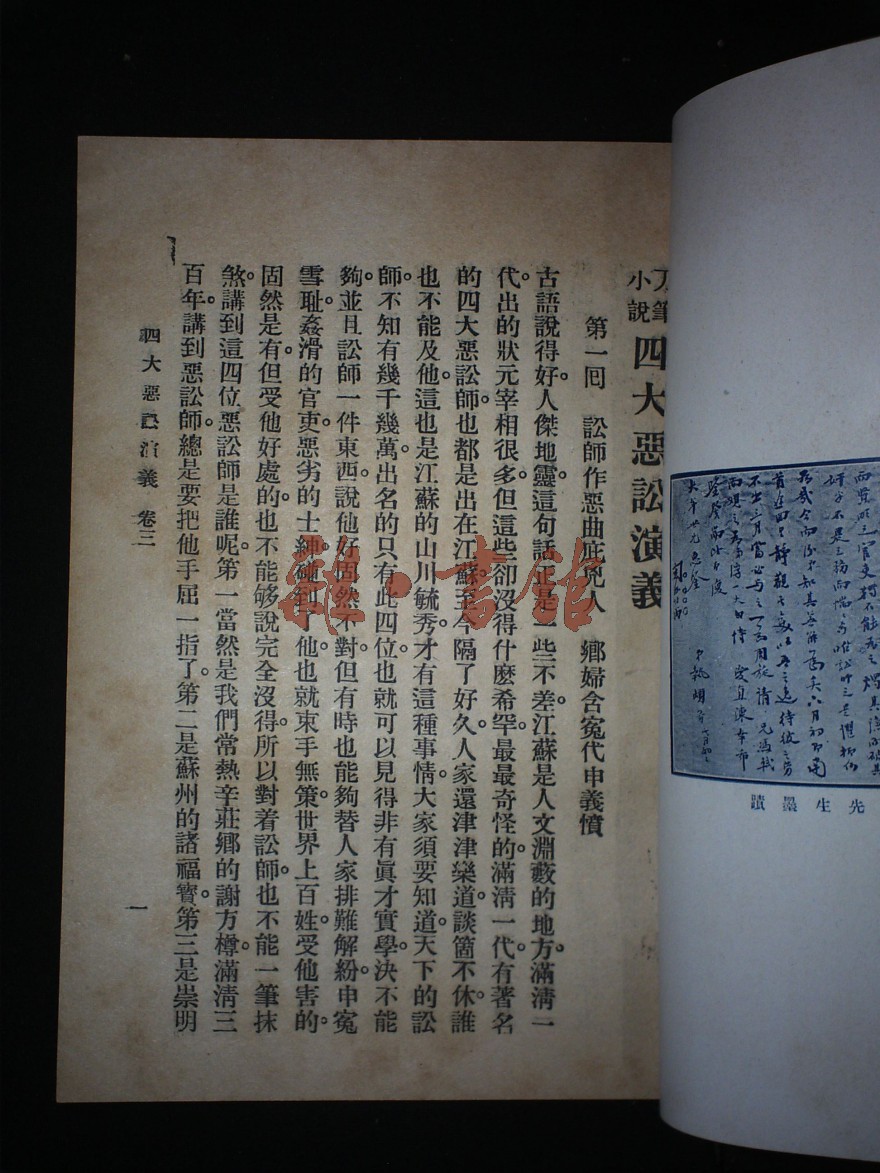 先生墨蹟
刀筆小說 四大惡訟演義
第一回 訟師作惡曲庇兇人 鄉婦含冤代申義憤
古語說得好。人傑地靈。這句話正是一些不差。江蘇是人文淵藪的地方。滿清一
代出的狀元宰相很多。但這些卻沒得什麼希罕。最最奇怪的。滿清一代。有著名
的四大惡訟師。也都是出在江蘇。至今隔了好久。人家還津津樂道。談箇不休。誰
也不能及他。這也是江蘇的山川毓秀。才有這種事情。大家須要知道。天下的訟
師。不知有幾千幾萬。出名的只有此四位。也就可以見得非有眞才實學。決不能
夠。並且訟師一件東西。說他好固然不對。但有時也能夠替人家排難解紛。申冤
雪耻。姦滑的官吏。惡劣的士紳。碰到了他。也就束手無策。世界上百姓。受他害的。
固然是有。但受他好處的。也不能够說完全沒得。所以對着訟師。也不能一筆抹
煞。講到這四位惡訟師是誰呢。第一當然是我們常熟辛莊鄉的謝方樽。滿清三
百年。講到惡訟師。總是要把他手屈一指了。第二是蘇州的諸福寳。第三是崇明
四大惡訟演義 卷三
一
雜·書館